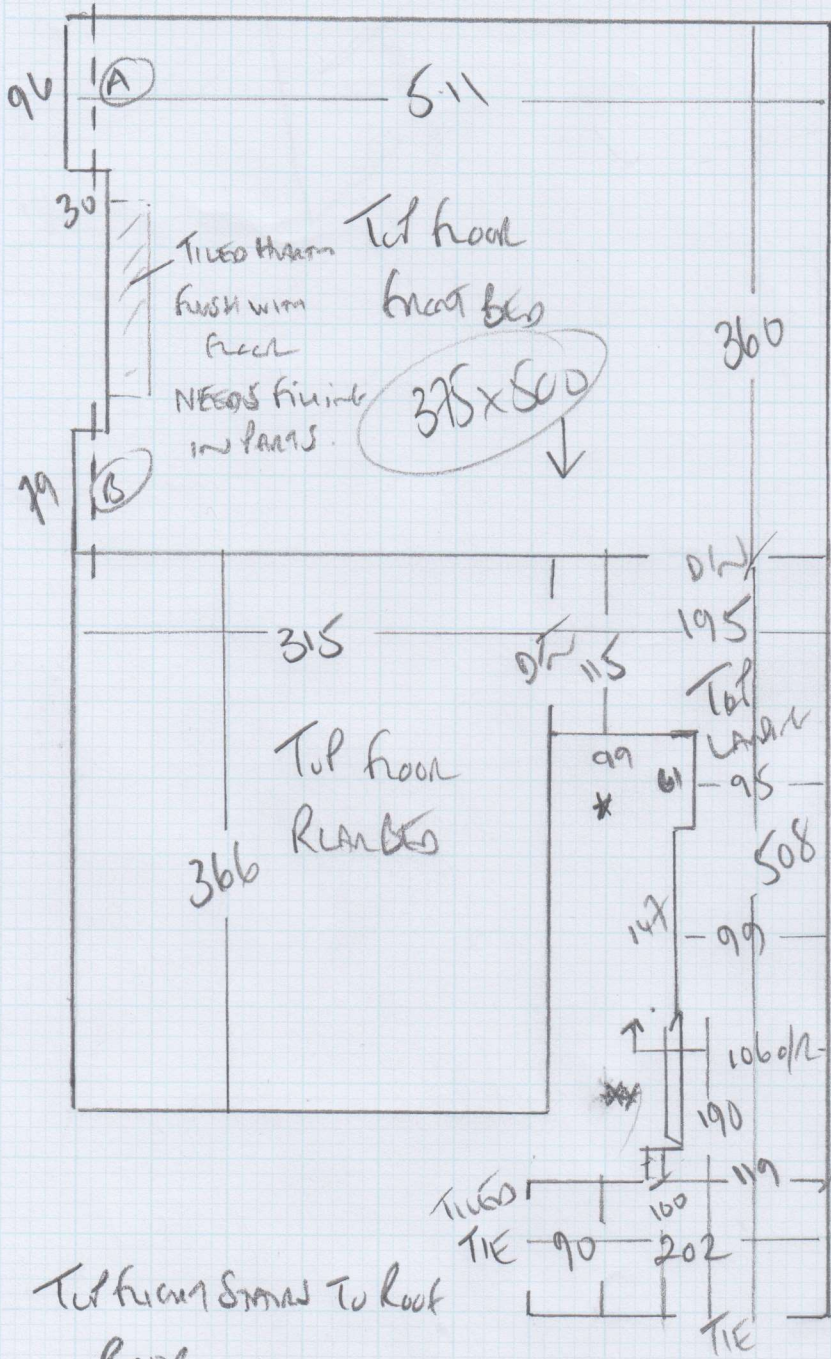 96
A
5.11
30
TILED HEARTH
FLUSH WITH
FLOOR
NEEDS FILLING
IN PARTS.
TOP FLOOR
FRONT BED
375 x 500
360
79
B
315
D/W
115
D/W
195
TOP
LANDING
TOP FLOOR
REAR BED
366
99
*
61
95
508
147
99
106 O/R
**
190
119
TILED
TIE
90
100
202
TIE
TOP FLIGHT STAIRS TO ROOF